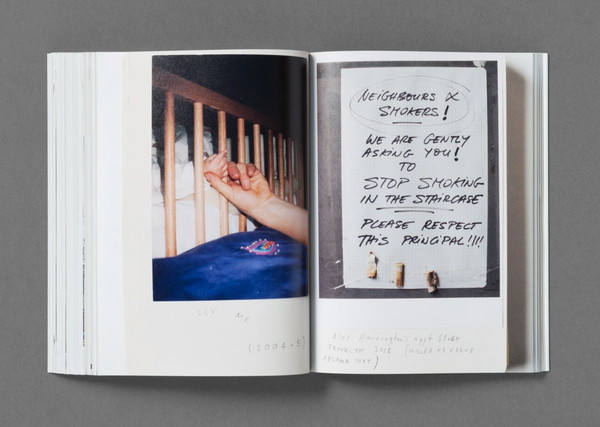 (2004-5)
NEIGHBOURS &
SMOKERS!
WE ARE GENTLY
ASKING YOU!
TO
STOP SMOKING
IN THE STAIRCASE
PLEASE RESPECT
THIS PRINCIPAL!!!!